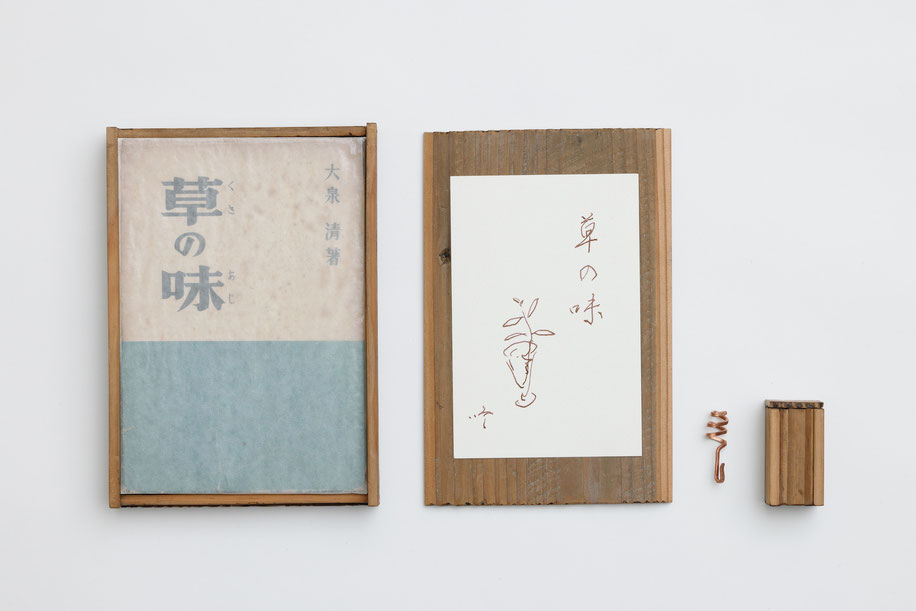 草の味
くさ
あじ
大泉 清著
草の味
吟